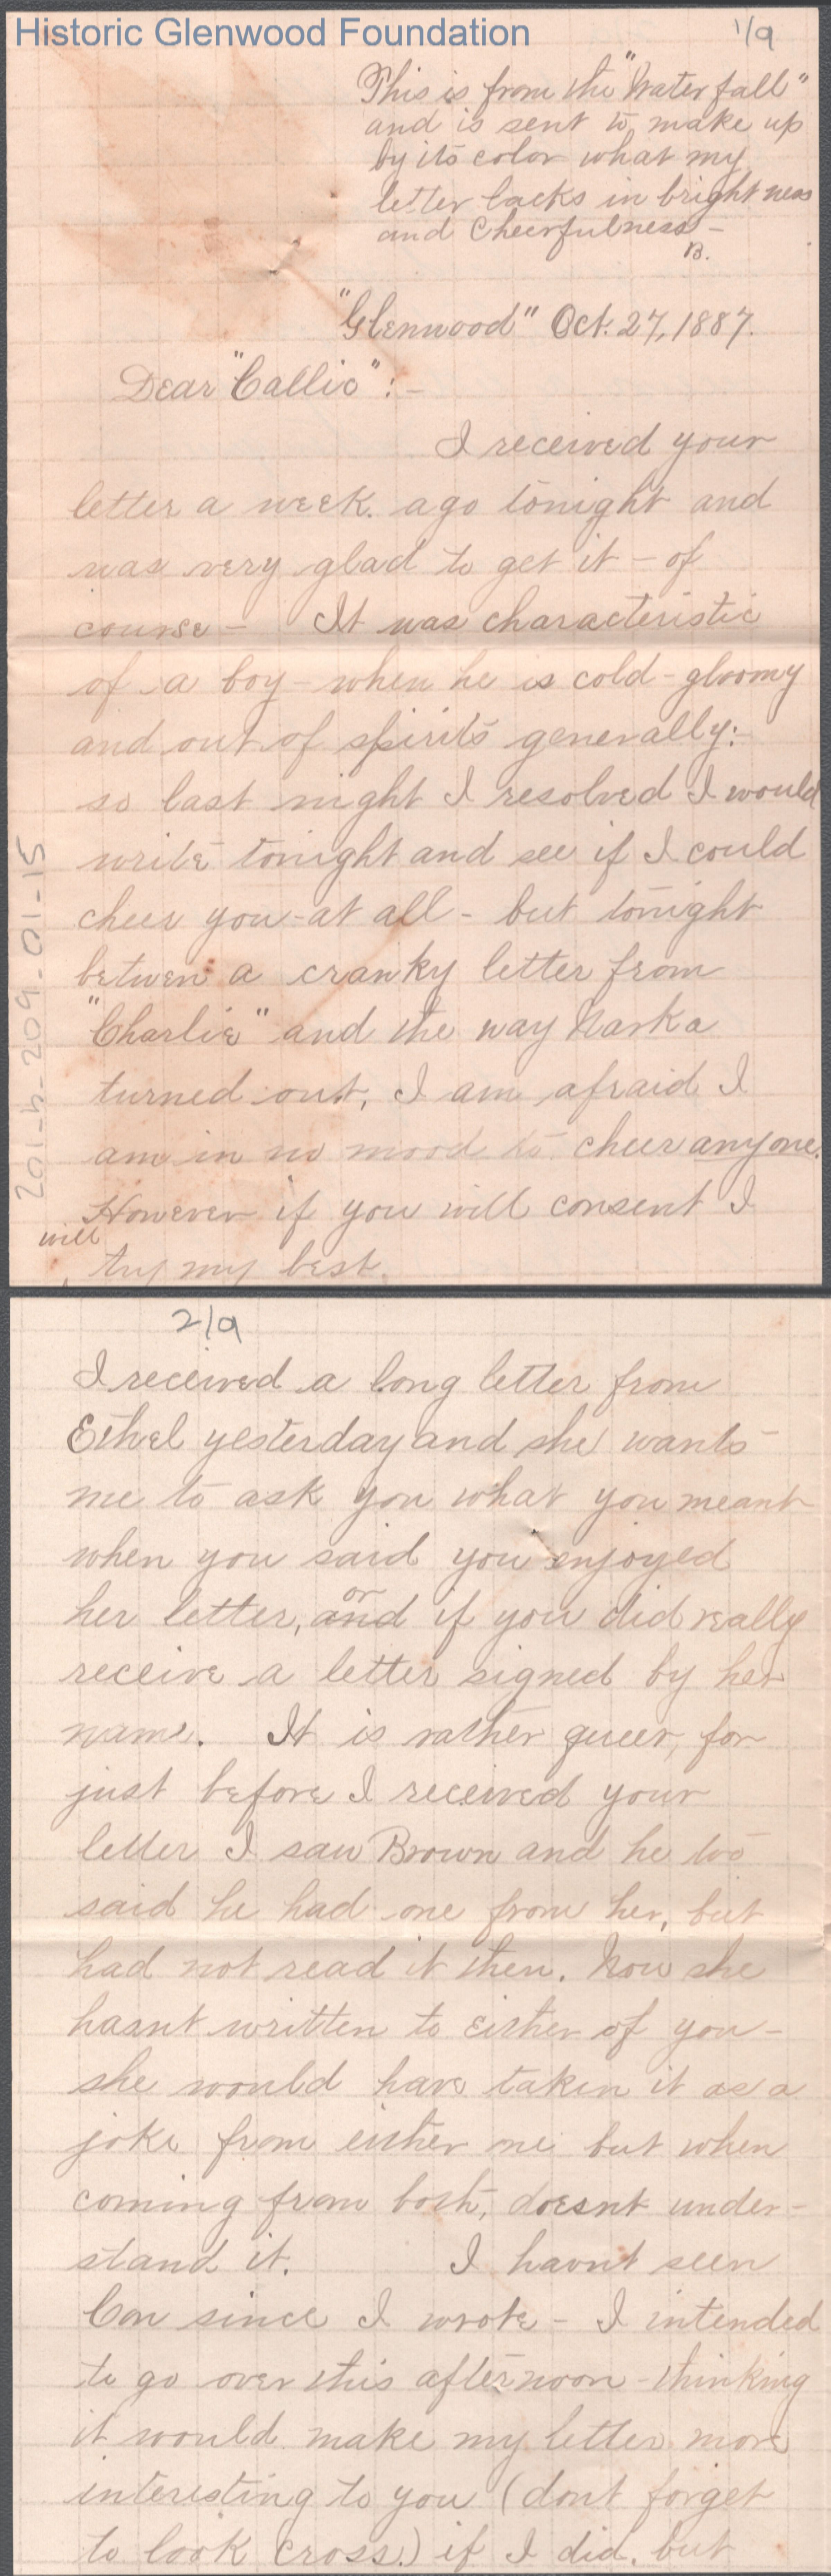 Historic Glenwood Foundation
1/9
This is from the "Waterfall"
and is sent to make up
by its color what my
letter lacks in brightness
and Cheerfulness -
B.
"Glenwood" Oct. 27, 1887.
Dear "Callie": -
I received your
letter a week ago tonight and
was very glad to get it - of
course - It was characteristic
of a boy - when he is cold - gloomy
and out of spirits generally: -
so last night I resolved I would
write tonight and see if I could
cheer you - at all - but tonight
between a cranky letter from
"Charlie" and the way Narka
turned out, I am afraid I
am in no mood to cheer anyone.
However if you will consent I
will
try my best.
201-h-209-01-15
2/9
I received a long letter from
Ethel yesterday and she wants
me to ask you what you meant
when you said you enjoyed
her letter, and if you did really
or
receive a letter signed by her
name. It is rather queer, for
just before I received your
letter I saw Brown and he too
said he had one from her, but
had not read it then. Now she
hasnt written to either of you -
she would have taken it as a
joke from either one but when
coming from both, doesnt under-
stand it. I havnt seen
Con since I wrote - I intended
to go over this afternoon - thinking
it would make my letter more
interesting to you (dont forget
to look cross.) if I did, but